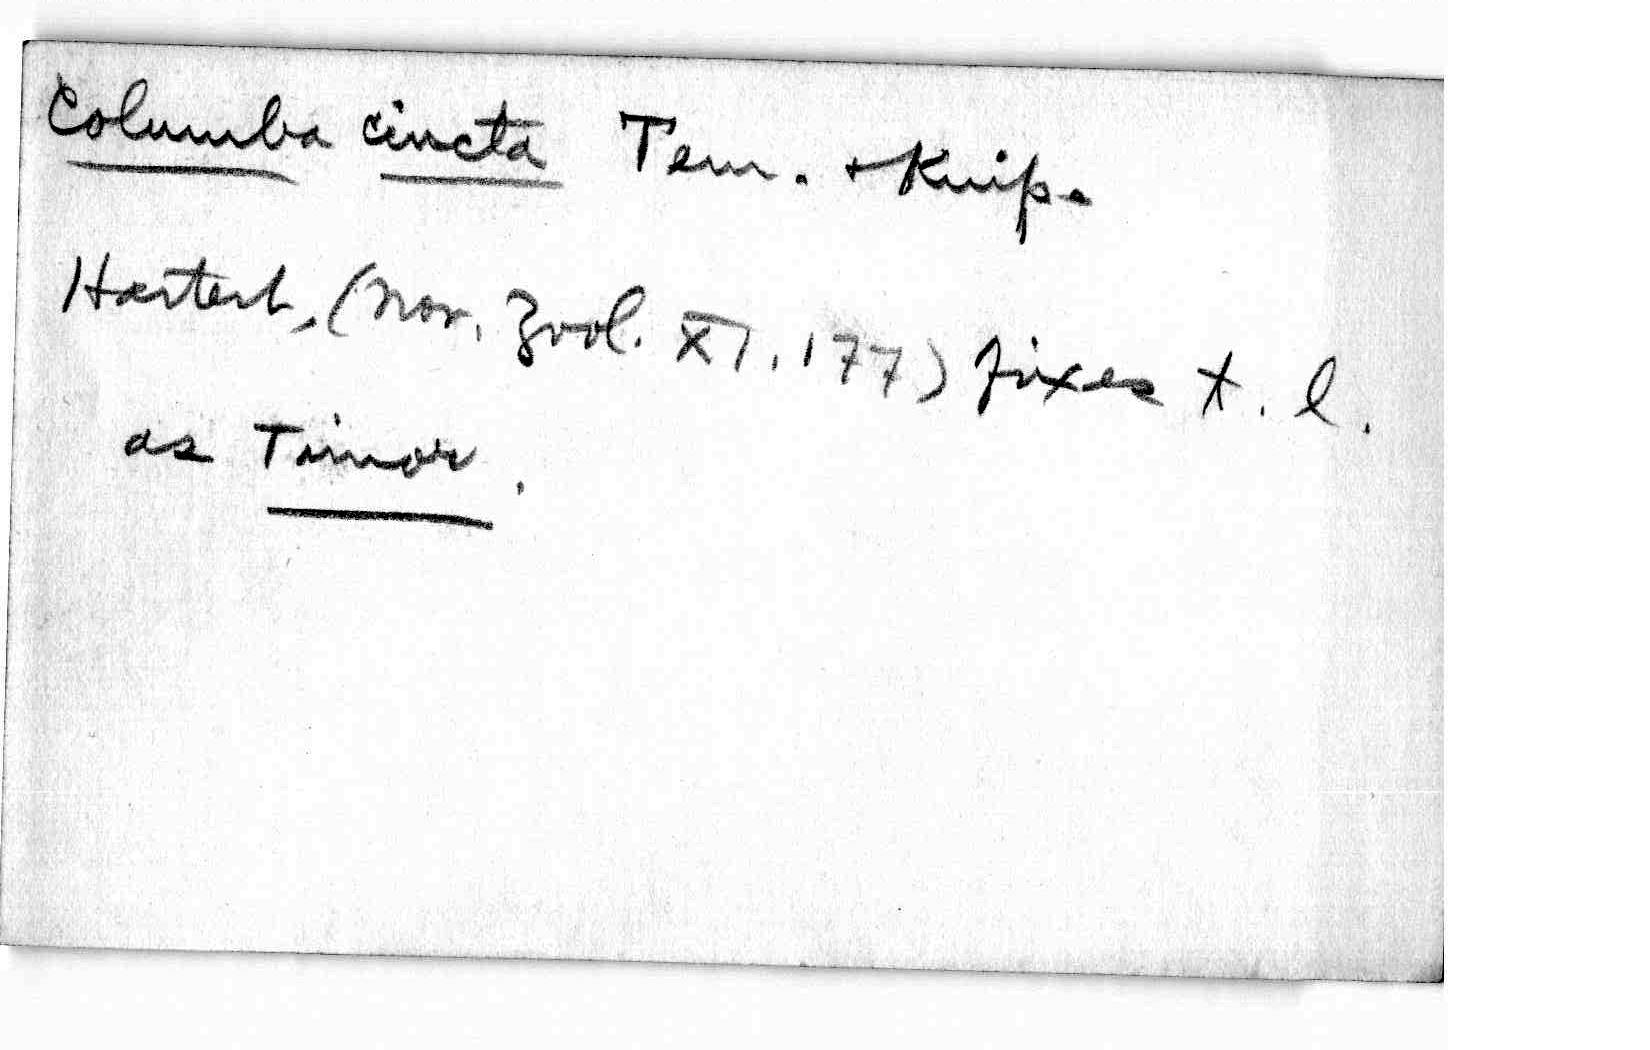 Columba cincta Tem. + Knip.
Hartert, (Nov. Zool. XI, 177) fixes t. l.
as Timor.